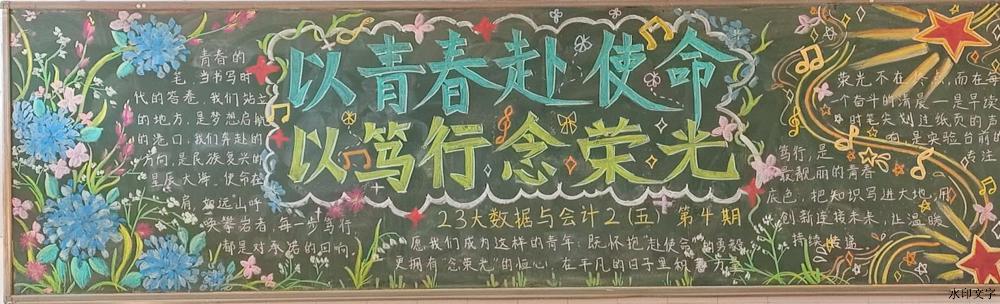 以青春赴使命
以笃行念荣光
23大数据与会计2(五) 第4期
青春的
笔,当书写时
代的答卷,我们站立
的地方,是梦想启航
的港口,我们奔赴的
方向,是民族复兴的
星辰大海。使命在
肩,如远山呼
唤攀岩者,每一步笃行
都是对承诺的回响。
愿我们成为这样的青年:既怀抱"赴使命"的勇毅
更拥有"念荣光"的恒心,在平凡的日子里积
荣光不在终点,而在每
一个奋斗的清晨—是早读
时笔尖划过纸页的声
响,是实验台前的
专注
笃行,是
最靓丽的青春
底色,把知识写进大地,用
创新连接未来,让温暖
持续传递
水印文字